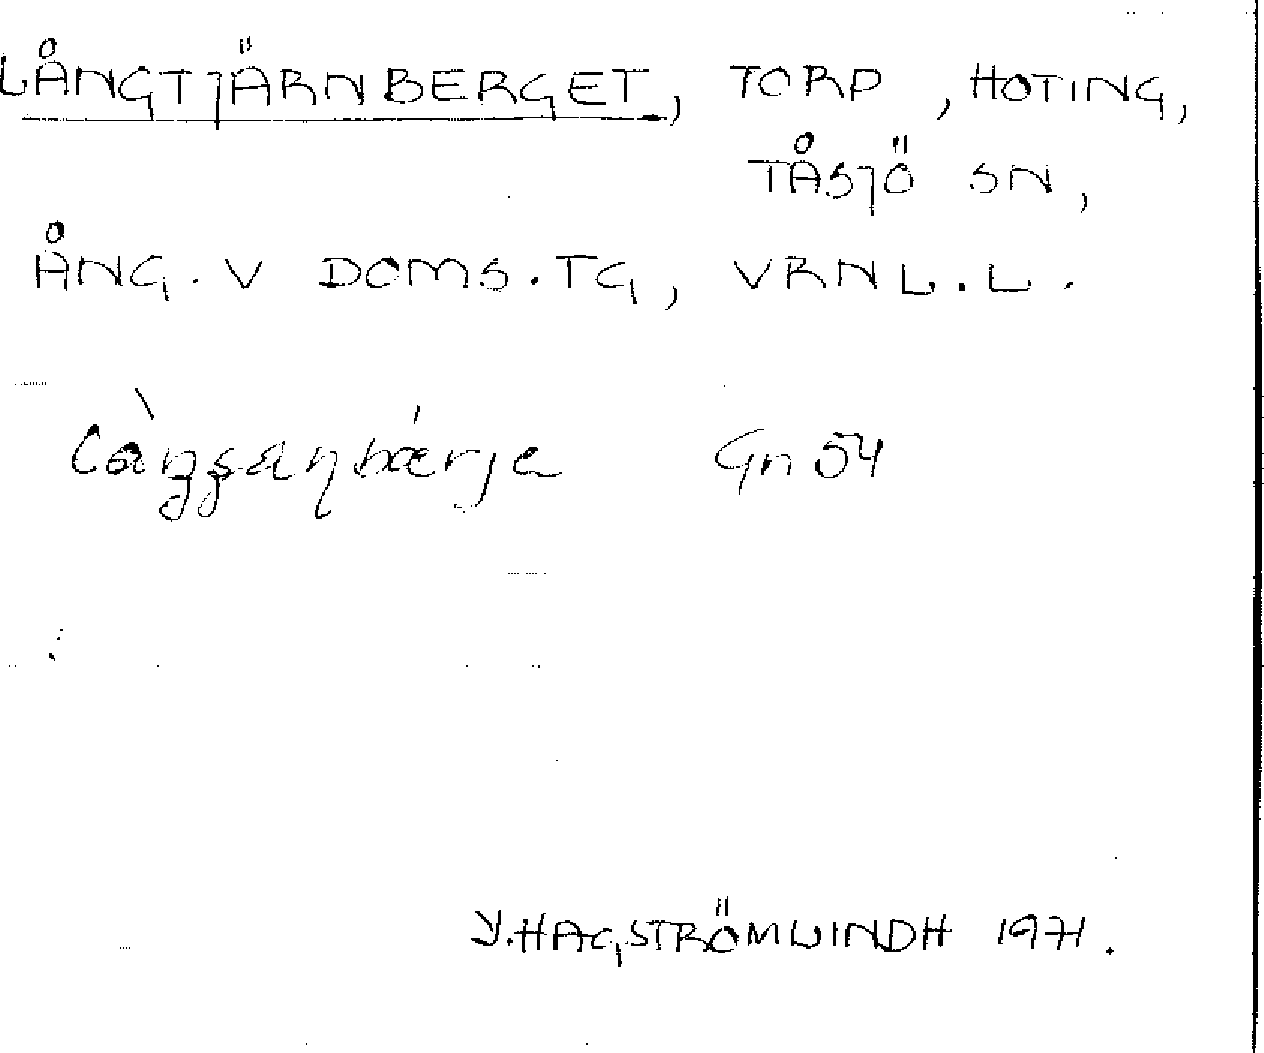 LÅNGTJÄRNBERGET, TORP, HOTING,
TÅSJÖ SN,
ÅNG. V DOMS.TG, VRNL.L.
Gn 54
Y. HAGSTRÖMWINDH 1971.